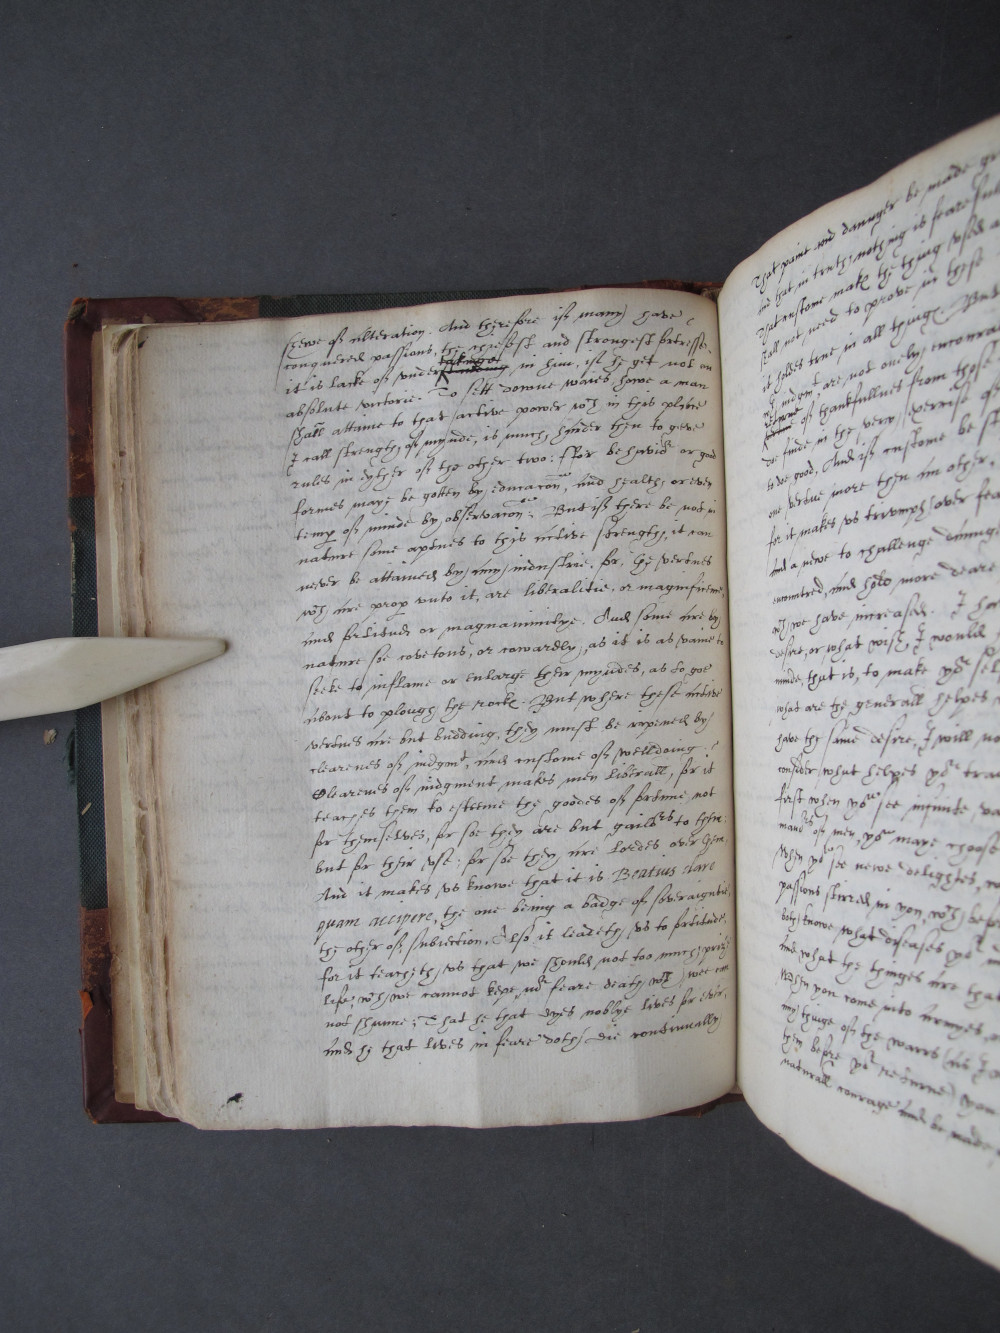 shewe of alteration. And therefore if many have
conquered passions, the chiefest and strongest fortresse,
it is lacke of understanding in him, if he get not an
absolute victorie. To sett downe waies howe a man
shall attaine to that active power wch in this place
I call strength of mynde, is much harder then to geve
rules in eyther of the other two: ffor behavior or good
formes may be gotten by educacon, and health or even
temp of minde by observacon. But if there be not in
nature some aptnes to this active strength, it can
never be attained by any industrie, for, the vertues
wch are prop unto it, are liberalitie, or magnificence,
and fortitude or magnanimitye. And some are by
nature soe covetous, or cowardly, as it is as vaine to
seeke to inflame or enlarge their myndes, as to goe
about to plough the rocke. But where these active
vertues are but budding, they must be ripened by
clearenes of iudgmt, and custome of welldoing.
Clearenes of iudgment makes men liberall, for it
teaches them to esteeme the goodes of fortune not
for themselves, for soe they are but gailors to them:
but for their use: for soe they are lordes over them
And it makes us knowe that it is Beatius dare
quam accipere, the one being a badge of soveraigntie,
the other of subiection. Also it leadeth us to fortitude,
for it teacheth us that we should not too much prize
life, wch we cannot kepe, nor feare death, wch wee can
not shunne; That he that dyes noblye lives for ever,
and he that lives in feare doth die continually
That paine and daunger be made
and that in truth, nothing is fearefull
that custome makes the thing used
shall not need to prove in these
it holdes true in all things. But
wch iudgmt, are not onely encourag
of thankfullnes from those
doe finde in the very exercise of
to doe good, And if custome be st
one vertue more then an other,
for it makes us triumph over fear
and a newe to challenge daunge
encountred, and hold more deare
wch we have increased. I ha
desire, or what wish I would
minde, that is, to make yor self
what are the generall helpes
have the same desire, I will no
consider what helpes yor tra
first when you see infinite va
maners of men, you maye choose
When you see newe delightes,
passions stirred in you, wch befor
both knowe what diseases yor
and what the thinges are that
When you come into armyes,
any thinge of the warrs (as I
then before yor returne) you
naturall courage and be made